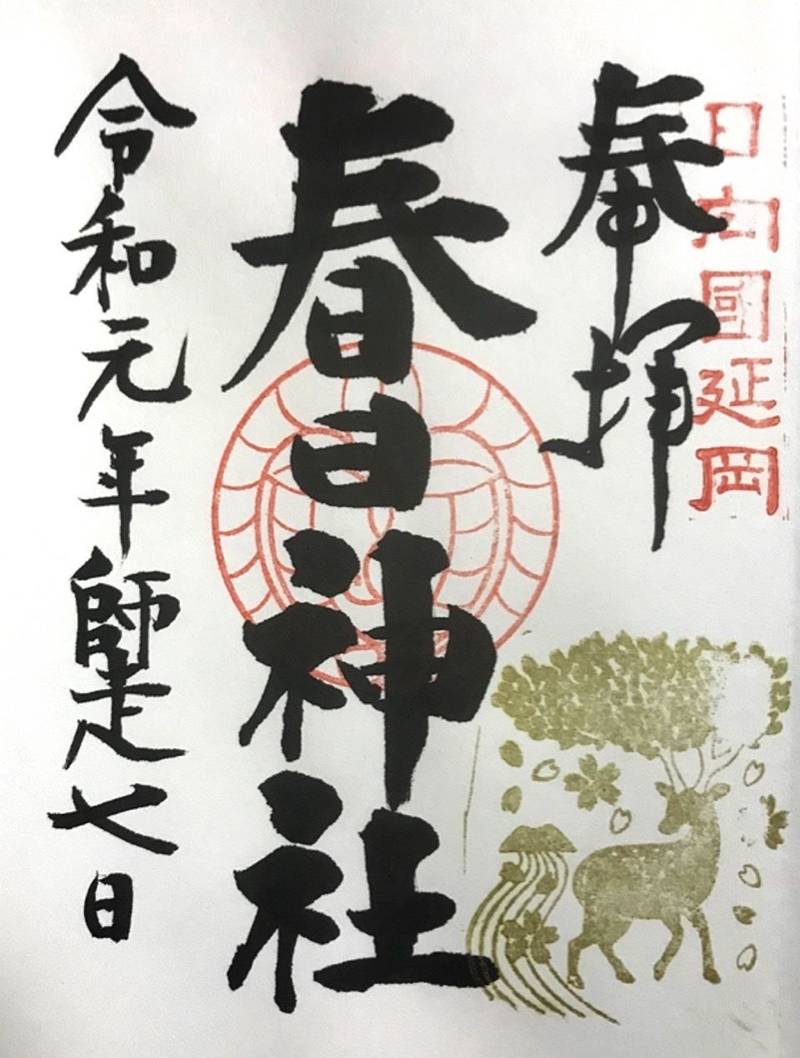 日向國延岡
奉拝
春日神社
令和元年師走七日